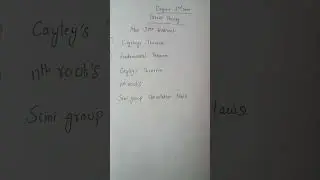 Degree 2nd sem
Group Theory
Most IMP
Lagranges Theorem
Fundamental Theorem
Cayley's Theorem
nth root's
Semi group Cancellation Laws
Cayley's
nth root's
Semi group
Laws